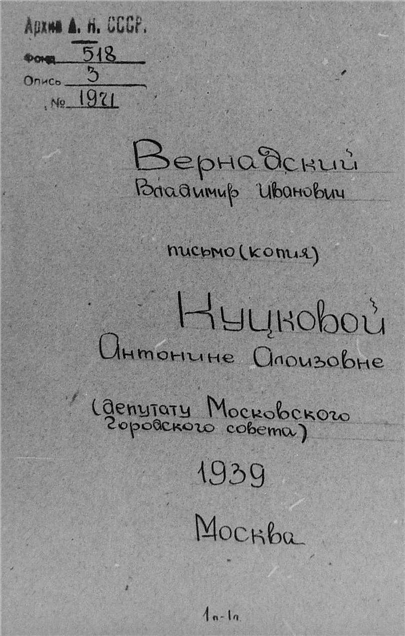 Архив А. Н. СССР.
Фонд 518
Опись 3
№ 1921
Вернадский
Владимир Иванович
письмо (копия)
Куцковой
Антонине Алоизовне
(депутату Московского
Городского совета)
1939
Москва
1п-1п